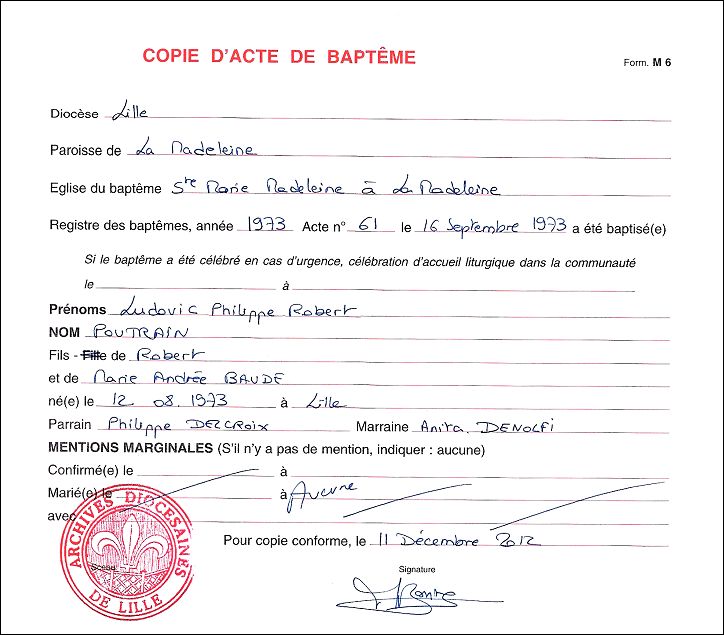 COPIE D'ACTE DE BAPTÊME
Form. M 6
Diocèse Lille
Paroisse de La Madeleine
Eglise du baptême Ste Marie Madeleine à La Madeleine
Registre des baptêmes, année 1973 Acte n° 61 le 16 Septembre 1973 a été baptisé(e)
Si le baptême a été célébré en cas d'urgence, célébration d'accueil liturgique dans la communauté
le à
Prénoms Ludovic Philippe Robert
NOM POUTRAIN
Fils - Fille de Robert
et de Marie Andrée BAUDE
né(e) le 12. 08. 1973 à Lille
Parrain Philippe DELCROIX Marraine Anita DENOLFI
MENTIONS MARGINALES (S'il n'y a pas de mention, indiquer : aucune)
Confirmé(e) le à
Marié(e) le à Aucune
avec
Pour copie conforme, le 11 Décembre 2012
ARCHIVES DIOCESAINES DE LILLE
Sceau
Signature